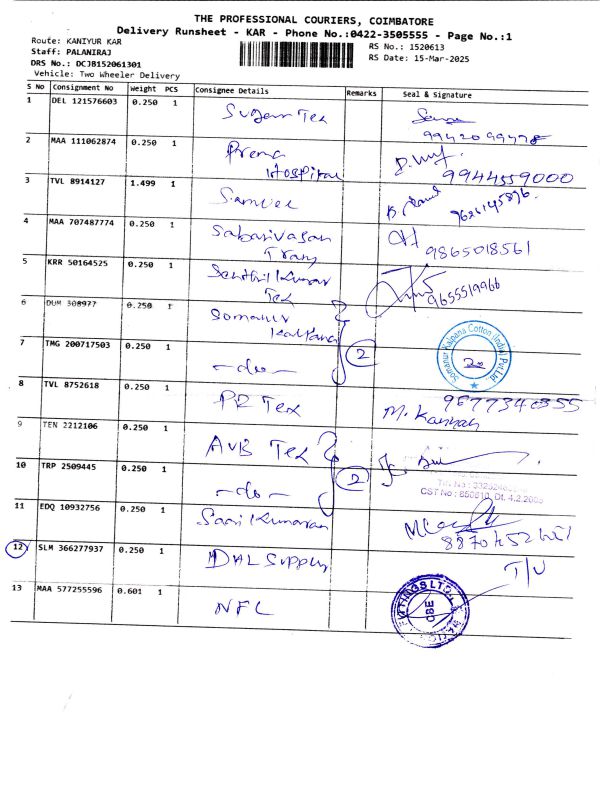 THE PROFESSIONAL COURIERS, COIMBATORE
Delivery Runsheet - KAR - Phone No.:0422-3505555 - Page No.:1
Route: KANIYUR KAR
RS No.: 1520613
Staff: PALANIRAJ
RS Date: 15-Mar-2025
DRS No.: DCJB152061301
Vehicle: Two Wheeler Delivery
S No Consignment No Weight PCS Consignee Details Remarks Seal & Signature
1 DEL 121576603 0.250 1 Sugam Tex
9942099478
2 MAA 111062874 0.250 1 Prema Hospital
9944559000
3 TVL 8914127 1.499 1 Samvee
9626145896
4 MAA 707487774 0.250 1 Sabarivasan Trans
9865018561
5 KRR 50164525 0.250 1 Senthil Kumar Tex
9655519966
6 DUM 308977 0.250 1 Somanur Kalpana
Somanur Kalpana Cotton (India) Pvt Ltd
7 TMG 200717503 0.250 1 -do- 2
8 TVL 8752618 0.250 1 PR Tex
9677340355
M. Kannan
9 TEN 2212106 0.250 1 AVB Tex
10 TRP 2509445 0.250 1 -do- 2
CST No : 850610, Dt. 4.2.2003
11 EDQ 10932756 0.250 1 Saai Kumaran
12 SLM 366277937 0.250 1 DHL Supply
T/U
13 MAA 577255596 0.601 1 NFC
CBE